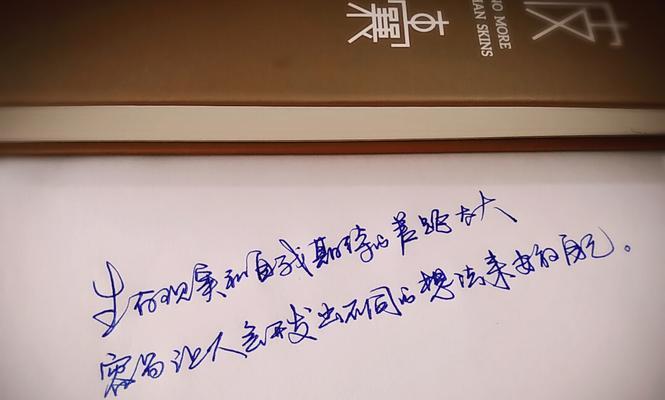 皮囊
NO MORE
HAN SKINS
生存现实和自我期待的差距太大
容易让人会开发出不同的想法来安放自己。